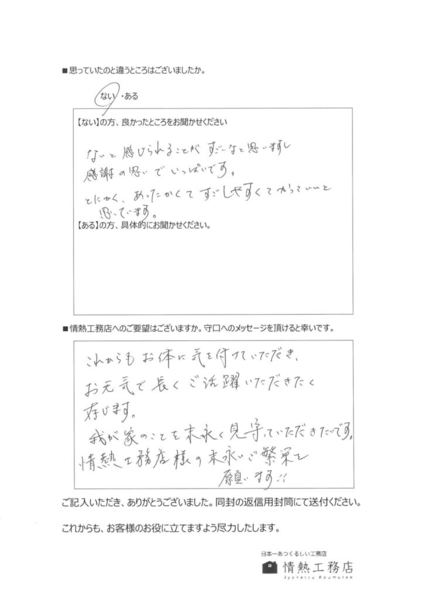 ■思っていたのと違うところはございましたか。
ない・ある
【ない】の方、良かったところをお聞かせください
ないと感じられることがすごいなと思いますし
感謝の思いでいっぱいです。
とにかく、あったかくてすごしやすくて
思っています。
【ある】の方、具体的にお聞かせください。
■情熱工務店へのご要望はございますか。守口へのメッセージを頂けると幸いです。
これからもお体に気を付けていただき、
お元気で長くご活躍いただきたく
存じます。
我が家のことを末永く見守っていただきたいです。
情熱工務店様の末永いご繁栄を
願います!!
ご記入いただき、ありがとうございました。同封の返信用封筒にて送付ください。
これからも、お客様のお役に立てますよう尽力したします。
日本一あつくるしい工務店
情熱工務店